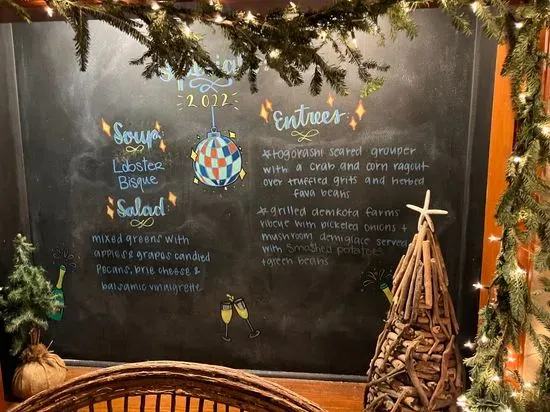 2022
Soup
Lobster
Bisque
Salad
mixed greens with
apples & grapes candied
pecans, brie cheese &
balsamic vinaigrette
Entrees
togorashi seared grouper
with a crab and corn ragout
over truffled grits and herbed
fava beans
grilled demkota farms
ribeye with pickeled onions +
mushroom demiglace served
with smashed potatoes
+green beans